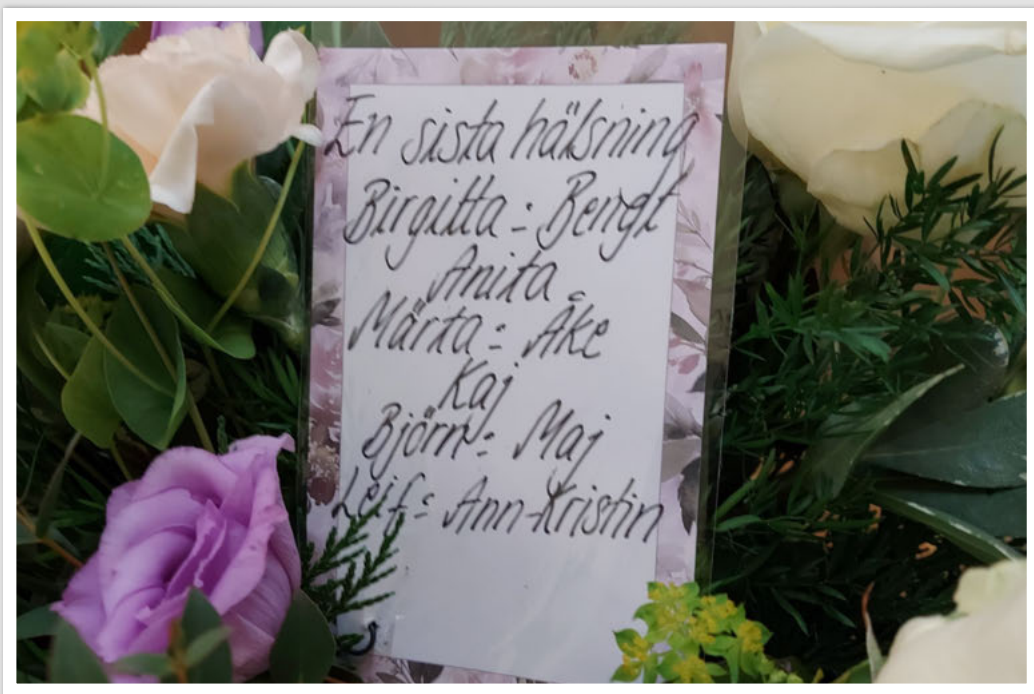 En sista hälsning
Birgitta = Bengt
Anita =
Märta = Åke
Kaj
Björn = Maj
Leif = Ann-Kristin